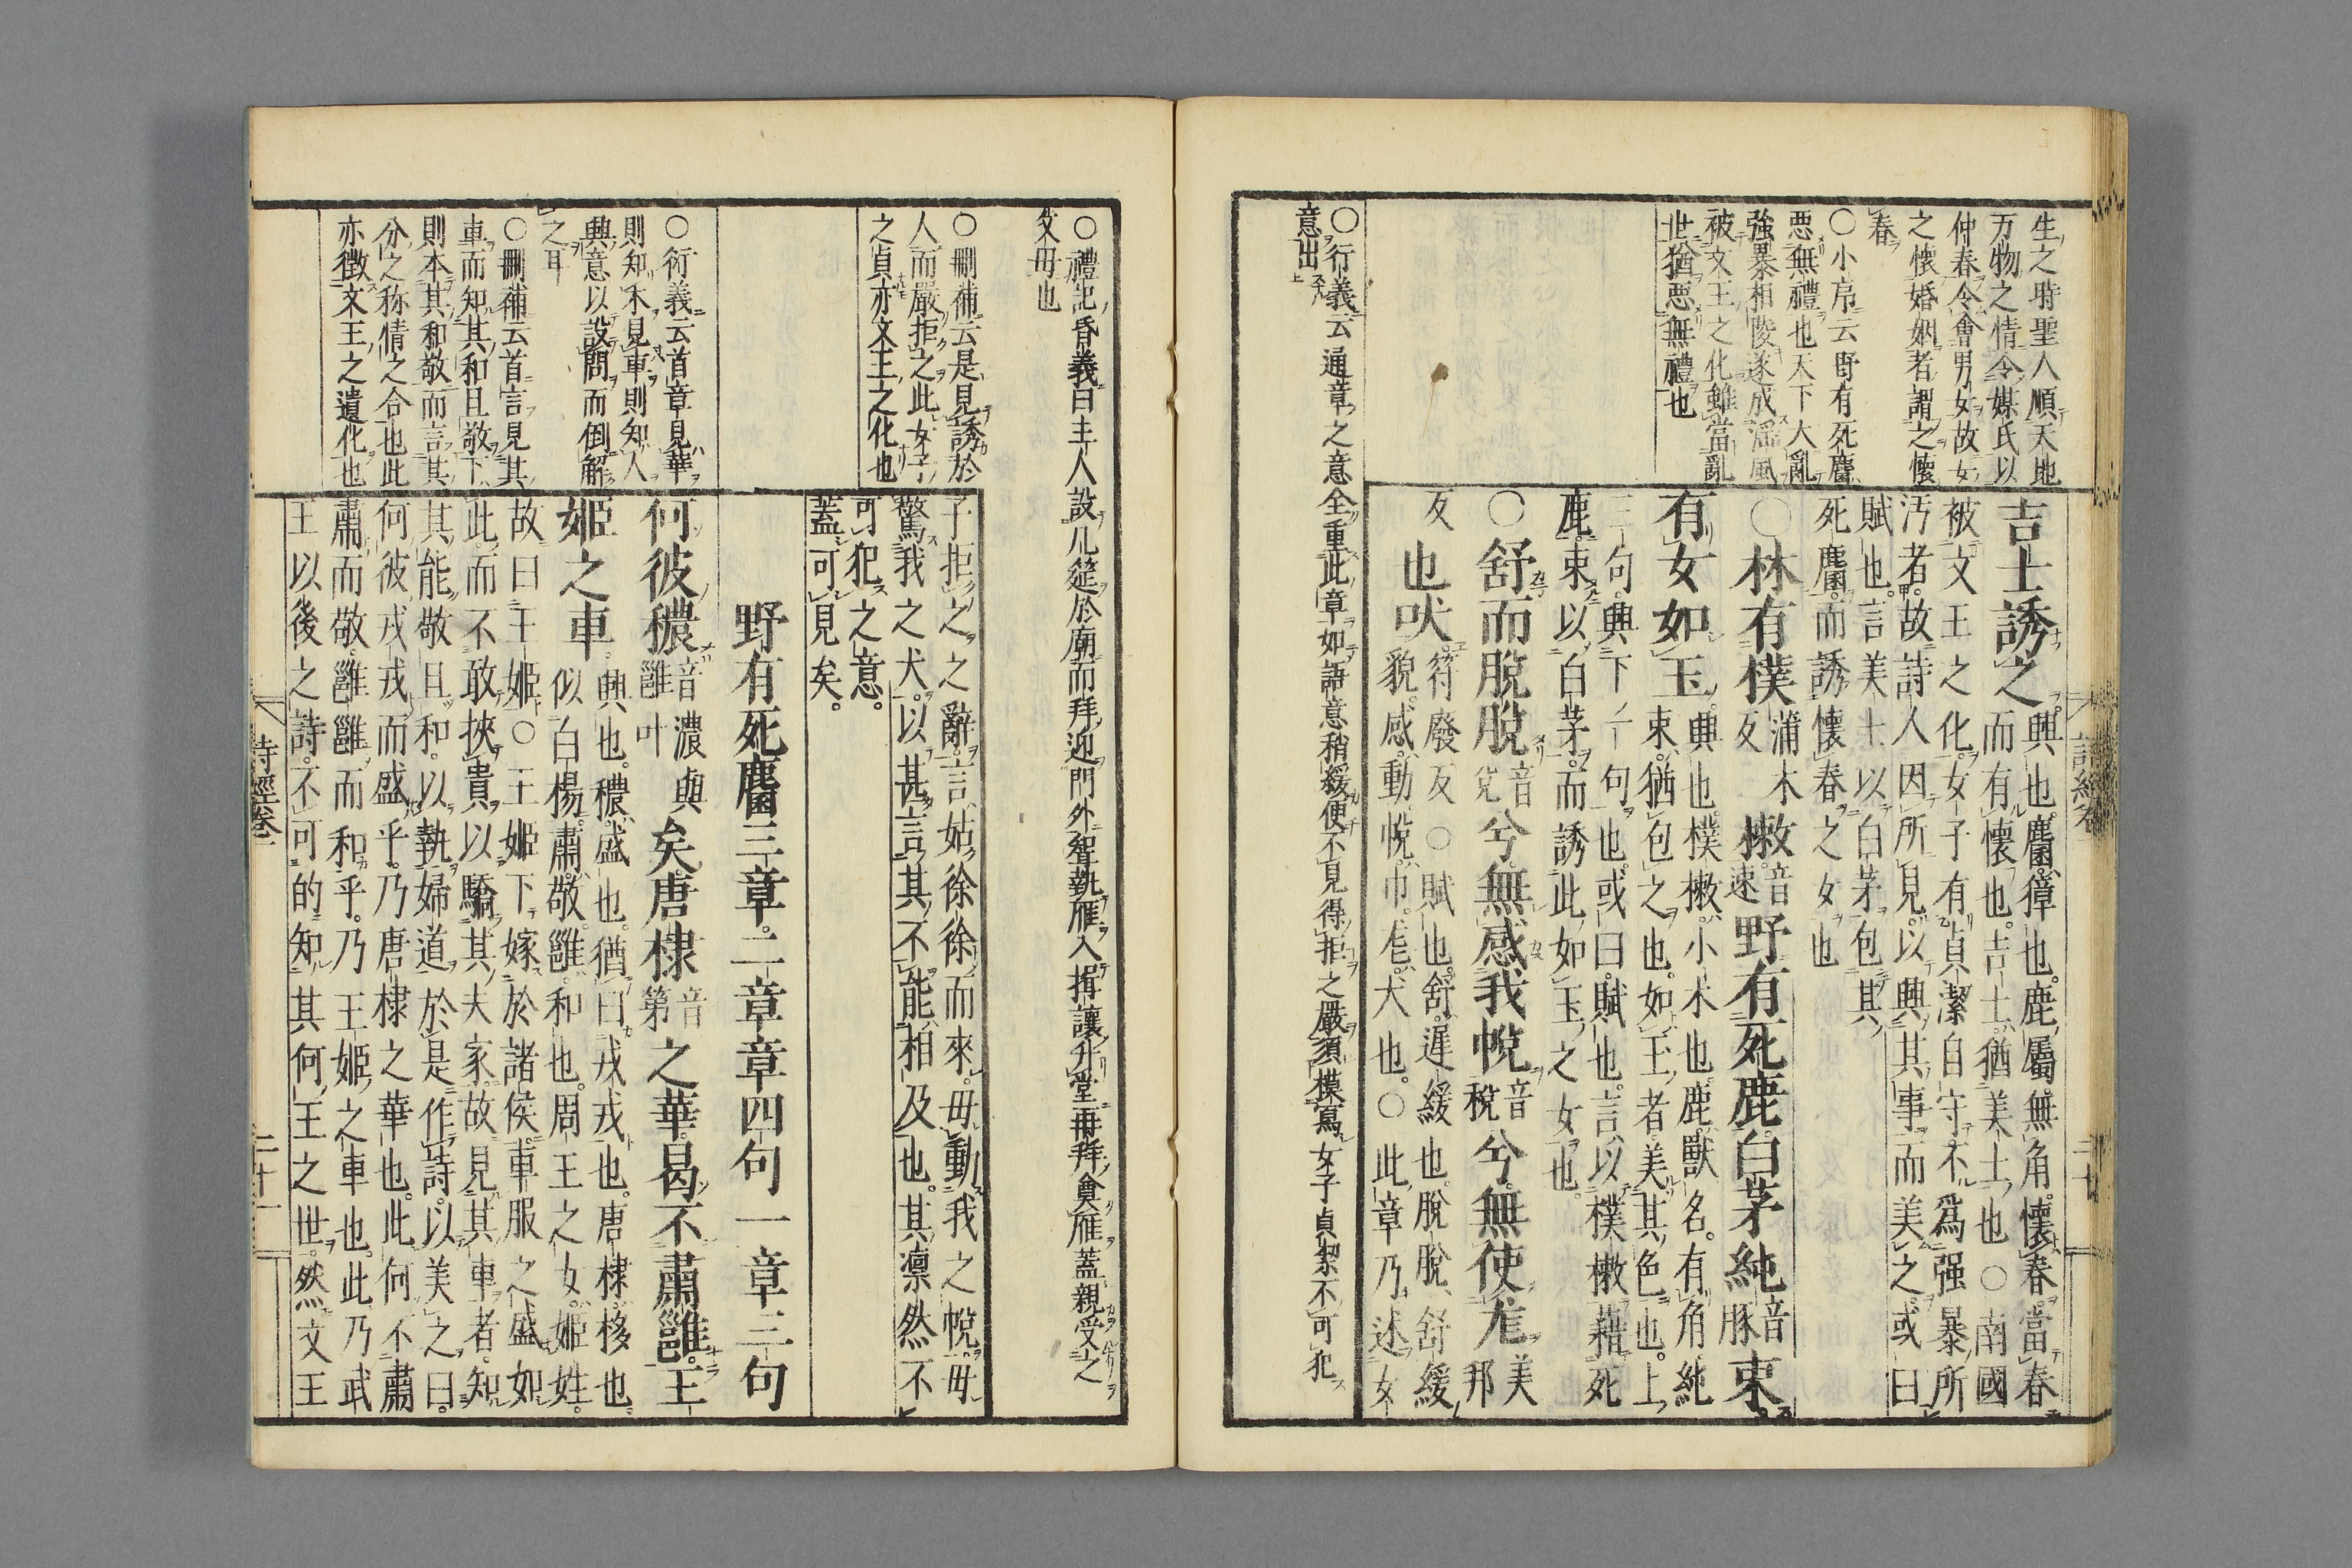 生之時聖人順天地
万物之情令媒氏以
仲春令會男女故女
之懷婚姻者謂之懷
春
〇小序云野有死麕
惡無禮也天下大亂
強暴相陵遂成淫風
被文王之化雖當亂
世猶惡無禮也
〇衍義云通章之意全重此章如語意稍緩便不見得拒之嚴須摸寫女子貞絜不可犯
意出
吉士誘之。興也。麕。獐也。鹿屬無角。懷春。當春
而有懷也。吉士。猶美士也〇南國
被文王之化。女子有貞潔自守。不爲强暴所
汚者。故詩人因所見。以興其事。而美之。或曰
賦也。言美士以白茅包其
死麕。而誘懷春之女也
〇林有樸蒲木反樕音速野有死鹿白茅純音豚束
有女如玉興也。樸樕小木也。鹿獸名。有角。純
束。猶包之也。如玉者。美其色也。上
三句。興下一句也。或曰。賦也。言以樸樕藉死
鹿。束以白茅。而誘此如玉之女也。
〇舒而脫脫音兌兮無感我帨音稅兮無使尨美邦
反也吠符廢反〇賦也。舒。遲緩也。脫脫。舒緩
貌。感。動。帨。巾。尨。犬也。〇此章乃述女
詩經卷一
二十
〇禮記昏義曰主人設几筵於廟而拜迎門外壻執雁入揖讓升堂再拜奠雁蓋親受之
父母也
〇刪補云是見誘於
人而嚴拒之此女子
之貞亦文王之化也
〇衍義云首章見華
則知木見車則知人
興意以設問而倒解
之耳
〇刪補云首言見其
車而知其和且敬下
則本其和敬而言其
分之称情之合也此
亦徴文王之遺化也
子拒之之辭。言姑徐徐而來。毋動我之帨。毋
驚我之犬。以甚言其不能相及也。其凛然不
可犯之意。
蓋可見矣。
野有死麕三章二章章四句一章三句
何彼穠音濃與雝叶矣唐棣音第之華曷不肅雝王
姬之車興也。穠。盛也。猶曰戎戎也。唐棣。栘也
似白楊。肅。敬。雝。和也。周王之女。姬姓。
故曰王姬〇王姬下嫁於諸侯。車服之盛如
此。而不敢挾貴以驕其夫家。故見其車者。知
其能敬且和。以執婦道。於是作詩以美之曰。
何彼戎戎而盛乎。乃唐棣之華也。此何不肅
肅而敬。雝雝而和乎。乃王姬之車也。此乃武
王以後之詩。不可的知其何王之世。然文王
詩經卷一
二十一